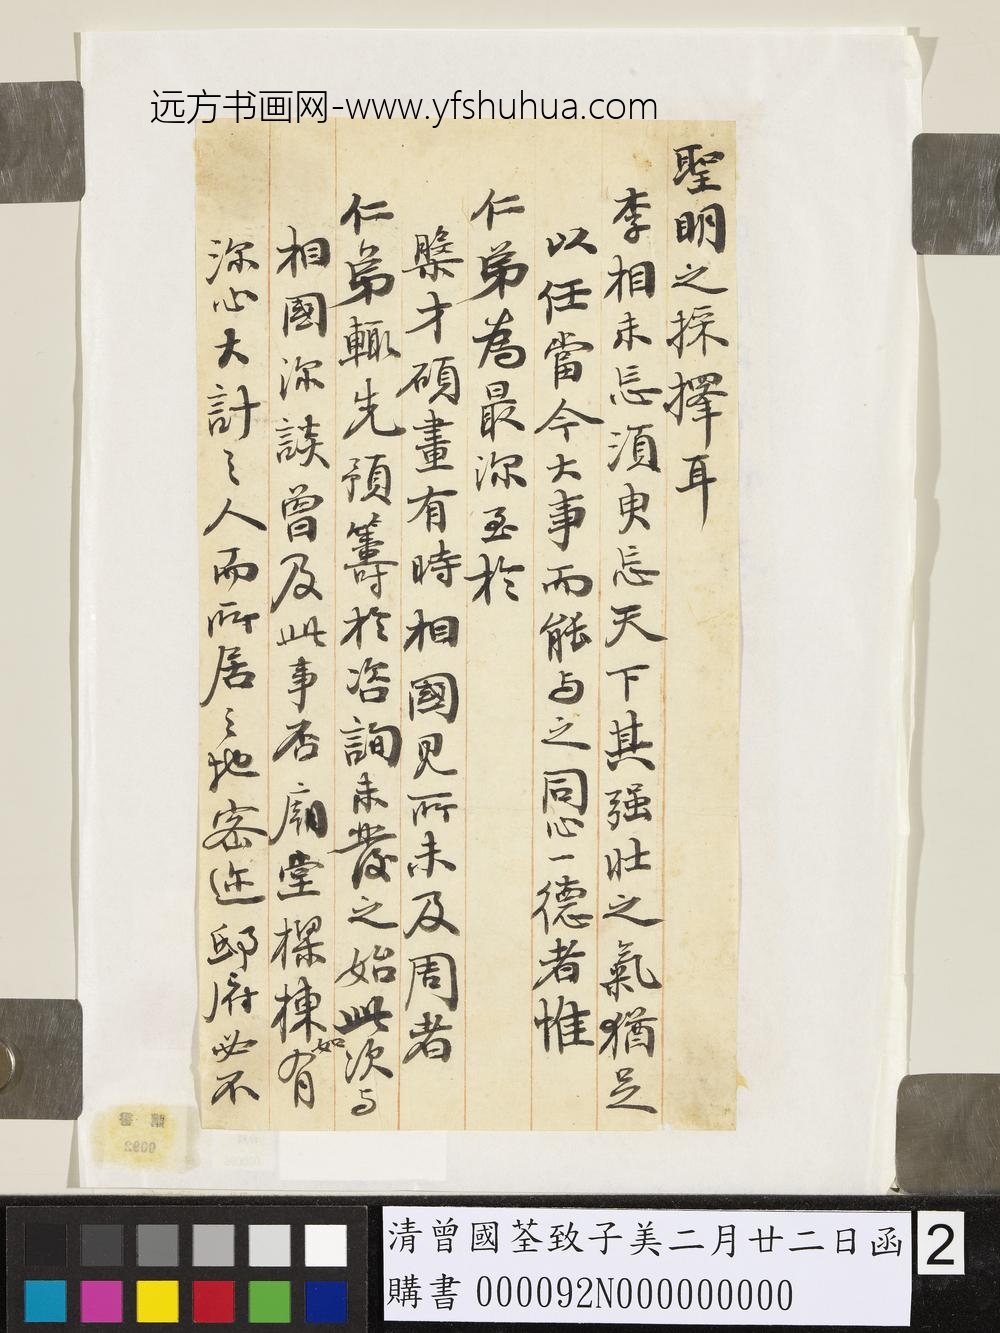 远方书画网-www.yfshuhua.com
聖明之採擇耳
李相未忘須臾忘天下其强壯之氣猶足
以任當今大事而能与之同心一德者惟
仁弟為最深至於
槃才碩畫有時相國見所未及周者
仁弟輒先預籌於咨詢未發之始此次与
相國深談曾及此事否廟堂樑棟有如
深心大計之人而所居之地密迩邸府必不
購書
0092
清曾國荃致子美二月廿二日函
2
購書 000092N000000000